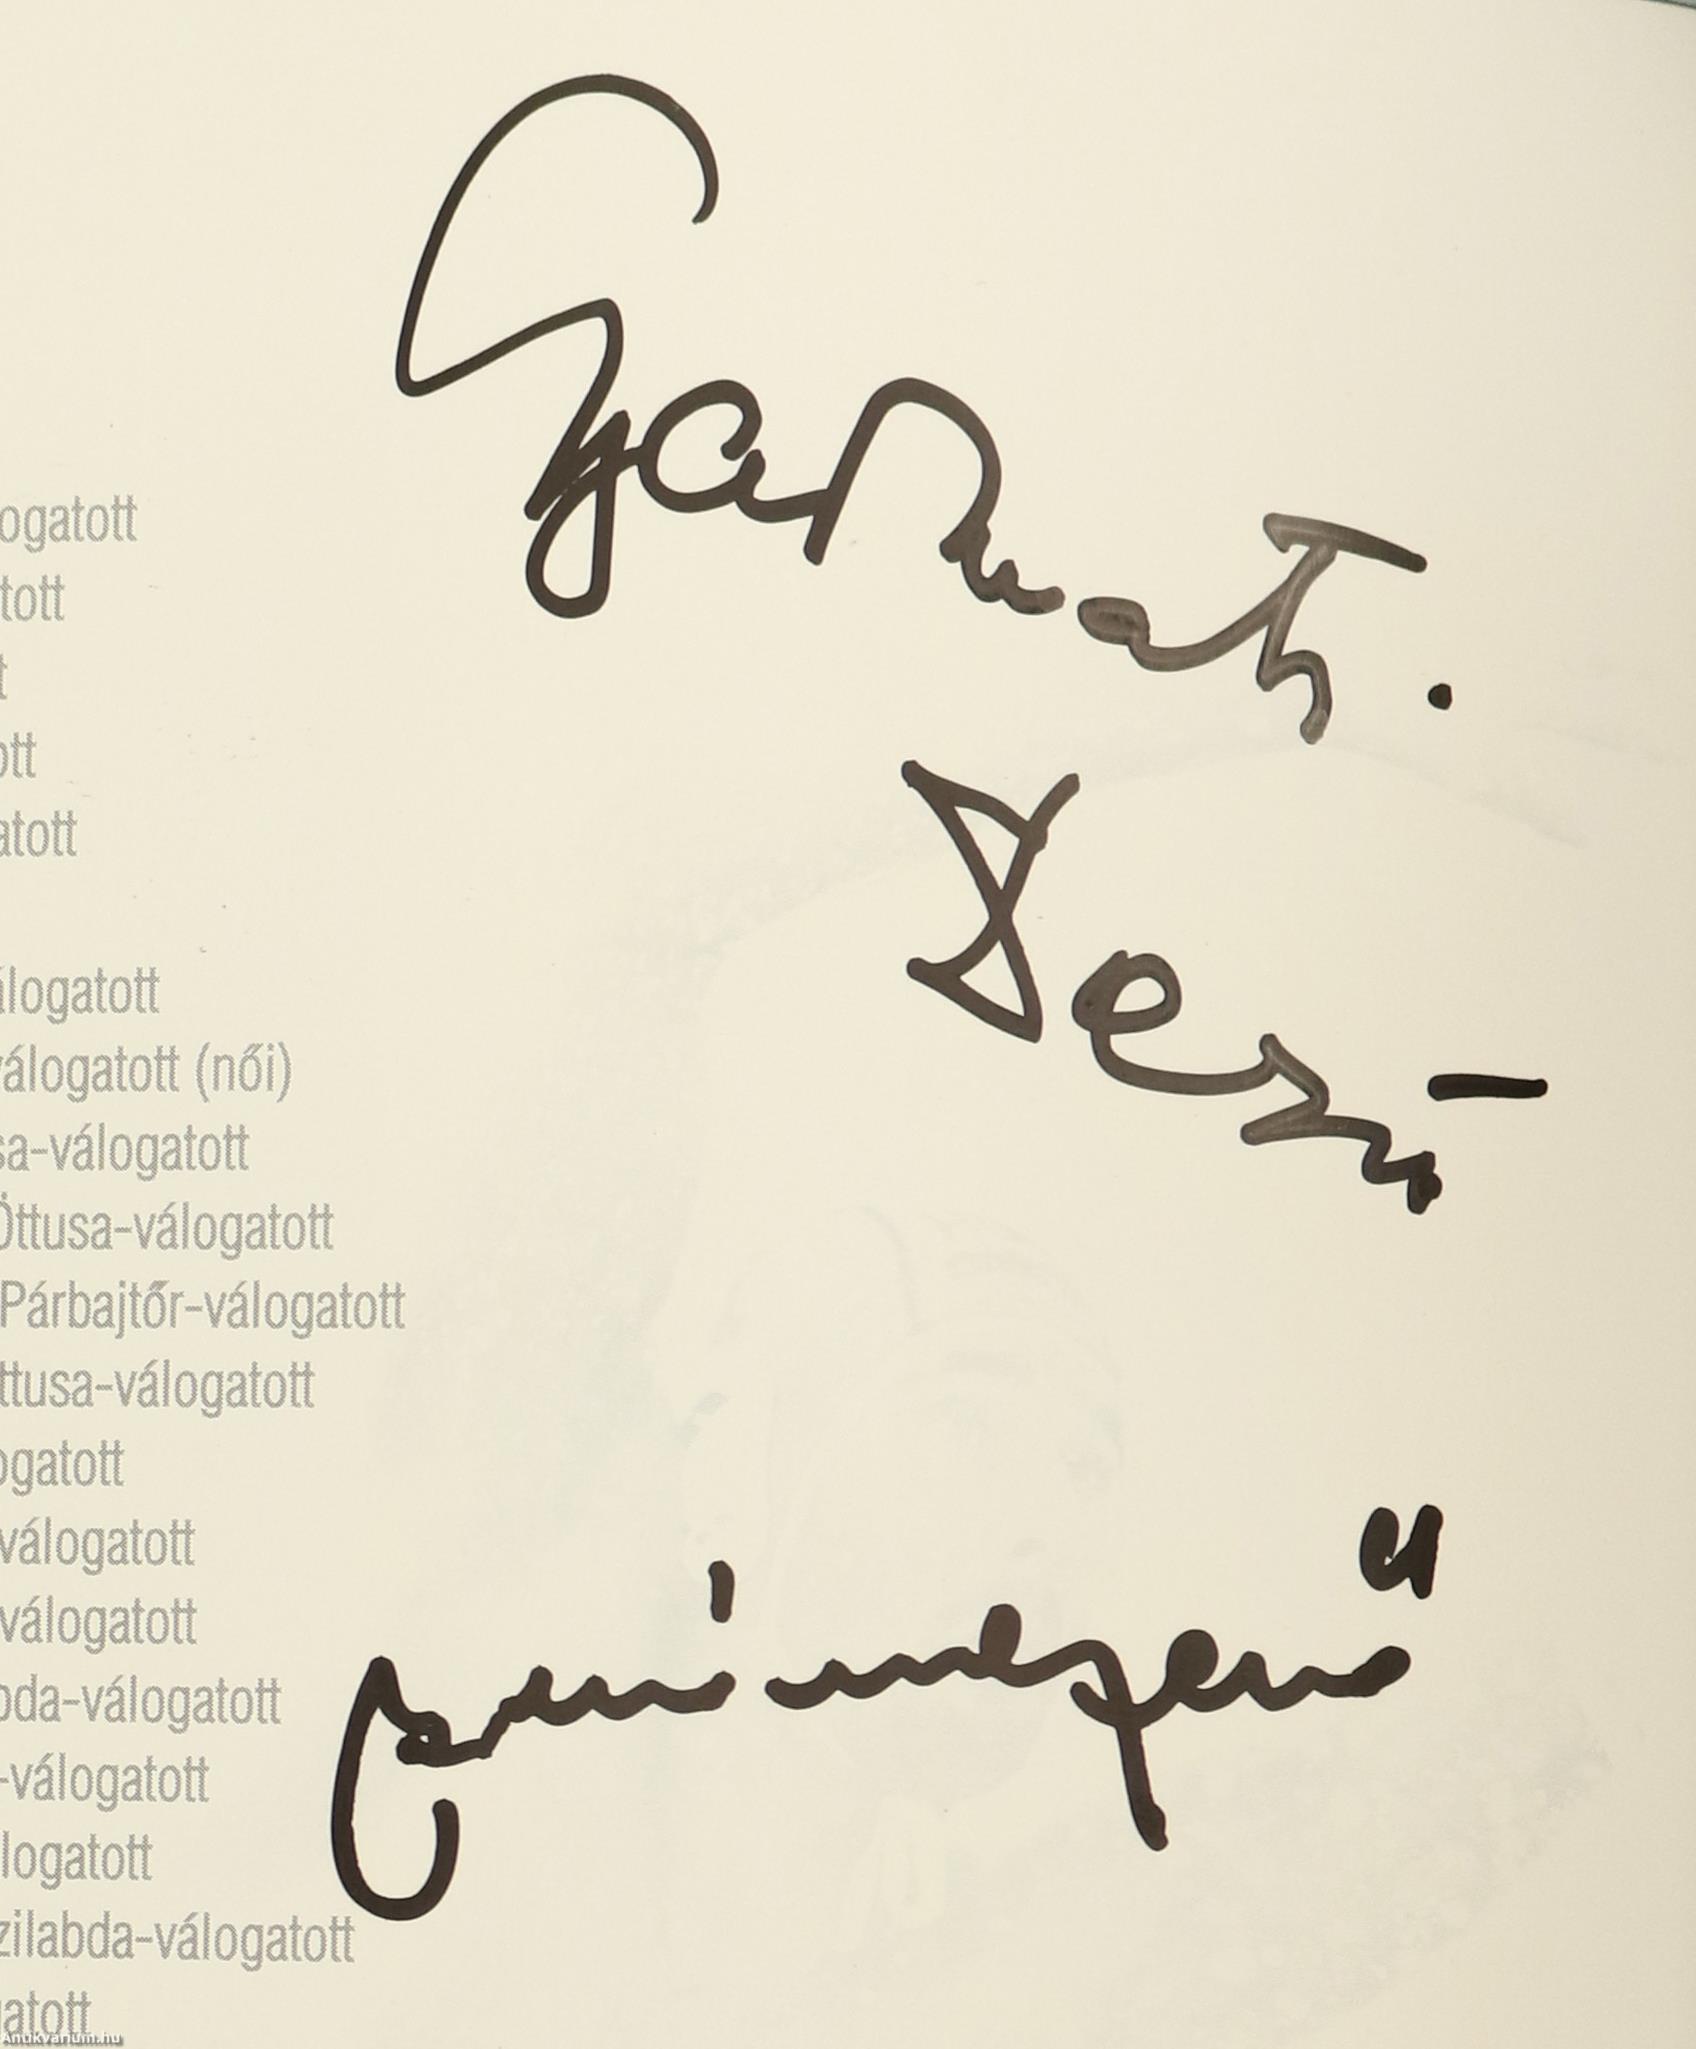 Gyarmati
Dezső
ogatott
tott
t
ott
atott
álogatott
válogatott (női)
sa-válogatott
Öttusa-válogatott
Párbajtőr-válogatott
ttusa-válogatott
ogatott
válogatott
válogatott
bda-válogatott
-válogatott
logatott
zilabda-válogatott
gatott
Antikvarium.hu